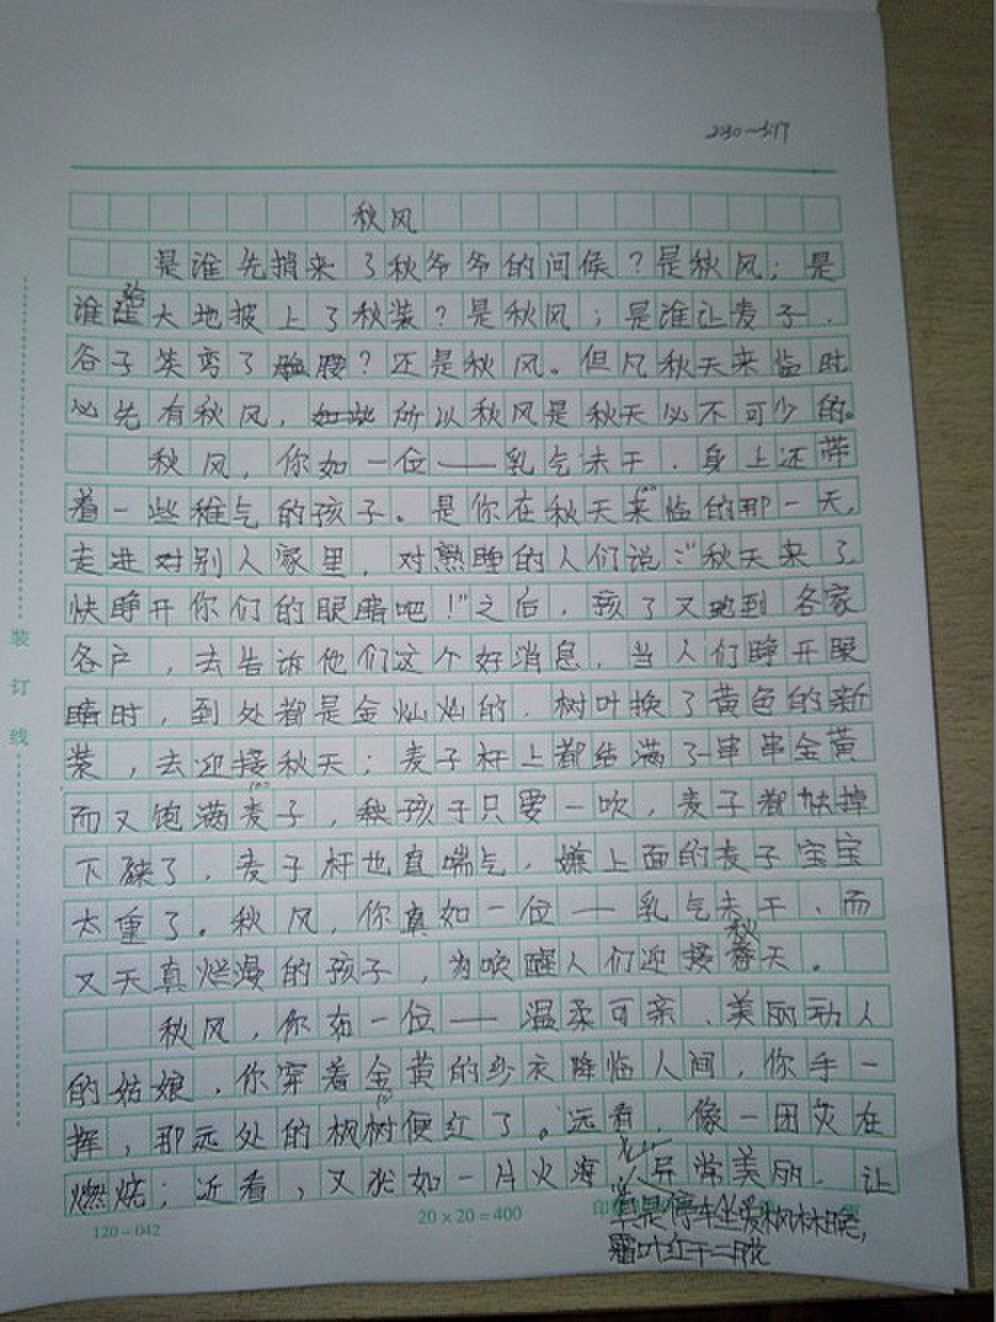 秋风
是谁先捎来了秋爷爷的问候？是秋风；是
谁给大地披上了秋装？是秋风；是谁让麦子、
谷子笑弯了腰？还是秋风。但凡秋天来临时
必先有秋风，所以秋风是秋天必不可少的。
秋风，你如一位——乳气未干、身上还带
着一些稚气的孩子。是你在秋天来临的那一天，
走进别人家里，对熟睡的人们说：“秋天来了，
快睁开你们的眼睛吧！”之后，孩子又跑到各家
各户，去告诉他们这个好消息，当人们睁开眼
睛时，到处都是金灿灿的，树叶换了黄色的新
装，去迎接秋天；麦子杆上都结满了一串串金黄
而又饱满麦子，秋孩子只要一吹，麦子都快掉
下来了，麦子杆也直喘气，嫌上面的麦子宝宝
太重了。秋风，你真如一位——乳气未干、而
又天真烂漫的孩子，为唤醒人们迎接秋天。
秋风，你如一位——温柔可亲、美丽动人
的姑娘，你穿着金黄的纱衣降临人间，你手一
挥，那远处的枫树便红了。远看，像一团火在
燃烧；近看，又犹如一片火海，异常美丽，让
停车坐爱枫林晚，
霜叶红于二月花
装
订
线
120-042
20×20=400